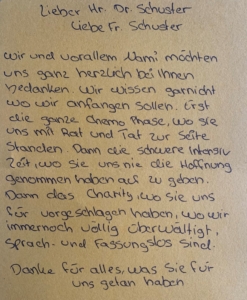 Lieber Hr. Dr. Schuster
Liebe Fr. Schuster
Wir und vorallem Mami möchten
uns ganz herzlich bei Ihnen
bedanken. Wir wissen garnicht
wo wir anfangen sollen. Erst
die ganze Chemo Phase, wo sie
uns mit Rat und Tat zur Seite
standen. Dann die schwere Intensiv
Zeit, wo Sie uns nie die Hoffnung
genommen haben auf zu geben.
Dann das Charity, wo Sie uns
für vorgeschlagen haben, wo wir
immernoch völlig überwältigt,
Sprach- und Fassungslos sind.
Danke für alles, was Sie für
uns getan haben